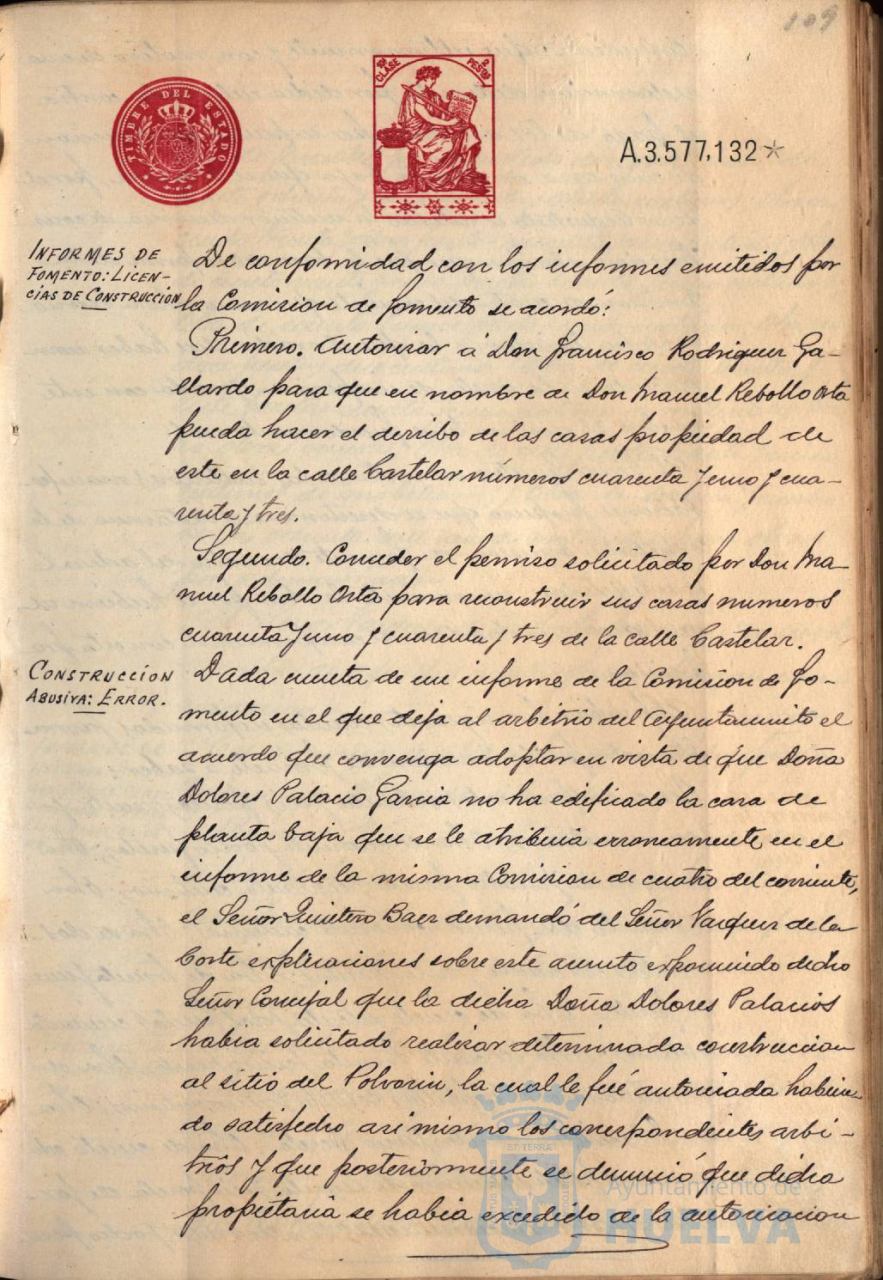 109
TIMBRE DEL ESTADO
10ª CLASE
2 PESTAS
A.3.577,132*
INFORMES DE
FOMENTO: LICEN-
CIAS DE CONSTRUCCION
De conformidad con los informes emitidos por
la Comision de fomento se acordó:
Primero. Autorizar á Don Francisco Rodriguez Ga-
llardo para que en nombre de Don Manuel Rebollo Orta
pueda hacer el derribo de las casas propiedad de
este en la calle Castelar números cuarenta y uno y cua-
renta y tres.
Segundo. Conceder el permiso solicitado por Don Ma-
nuel Rebollo Orta para reconstruir sus casas numeros
cuarenta y uno y cuarenta y tres de la calle Castelar.
CONSTRUCCION
ABUSIVA: ERROR.
Dada cuenta de un informe de la Comision de Fo-
mento en el que deja al arbitrio del Ayuntamiento el
acuerdo que convenga adoptar en vista de que Doña
Dolores Palacio Garcia no ha edificado la casa de
planta baja que se le atribuia erroneamente en el
informe de la misma Comision de cuatro del corriente,
el Señor Quintero Baez demandó del Señor Vazquez de la
Corte explicaciones sobre este asunto exponiendo dicho
Señor Concejal que la dicha Doña Dolores Palacios
habia solicitado realizar determinada construccion
al sitio del Polvorin, la cual le fué autorizada habien-
do satisfecho asi mismo los correspondientes arbi-
trios y que posteriormente se denunció que dicha
propietaria se habia excedido de la autorizacion
Ayuntamiento de
HUELVA